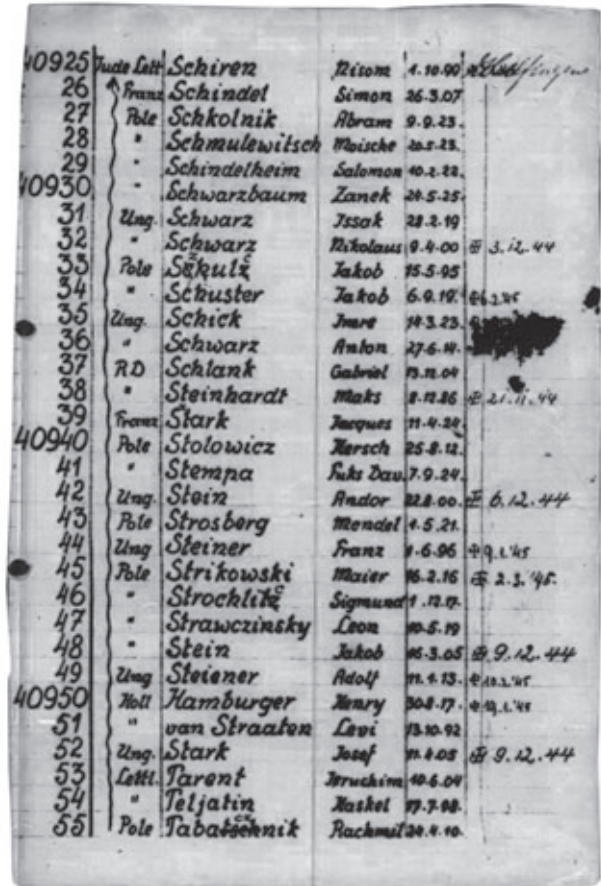 40925 Jude Lett Schiren Nisom 1.10.99
26 Franz Schindel Simon 26.3.07
27 Pole Schkolnik Abram 9.9.23.
28 " Schmulewitsch Moische 20.5.23.
29 " Schindelheim Salomon 10.2.22.
40930 " Schwarzbaum Zanek 24.5.25.
31 Ung. Schwarz Issak 28.2.19
32 " Schwarz Nikolaus 9.4.00 3.12.44
33 Pole Jakob 15.5.95
34 " Schuster Jakob 6.9.19.
35 Ung. Schick Imre 14.3.23.
36 " Schwarz Anton 27.6.14.
37 RD Schlank Gabriel 13.12.04
38 " Steinhardt Maks 8.12.86 21.11.44
39 Franz Stark Jacques 11.4.24.
40940 Pole Stolowicz Hersch 25.8.12.
41 " Stempa Fuks Dav. 7.9.24.
42 Ung. Stein Andor 22.8.00. 6.12.44
43 Pole Strosberg Mendel 1.5.21.
44 Ung Steiner Franz 1.6.96 9.1.45
45 Pole Strikowski Maier 16.2.16 2.3.45.
46 " Sigmund 1.12.17.
47 " Strawczinsky Leon 10.5.19
48 " Stein Jakob 16.3.05 9.12.44
49 Ung Steiener Adolf 11.1.13.
40950 Holl Hamburger Henry 30.8.17
51 " van Straaten Levi 13.10.92
52 Ung. Stark Josef 11.4.05 9.12.44
53 Lettl. Tarent Jeruchim 10.6.04
54 " Teljatin Haskel
55 Pole Rachmil 24.4.10.